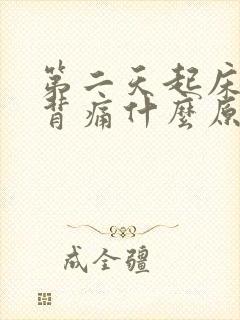 第二天起床
背痛什麼原
成全疆